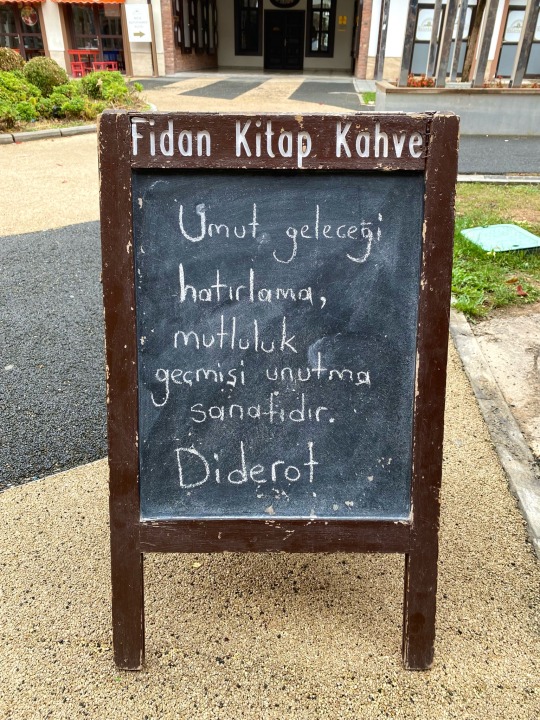 Fidan Kitap Kahve
Umut, geleceği
hatırlama,
mutluluk
geçmişi unutma
sanatıdır.
Diderot